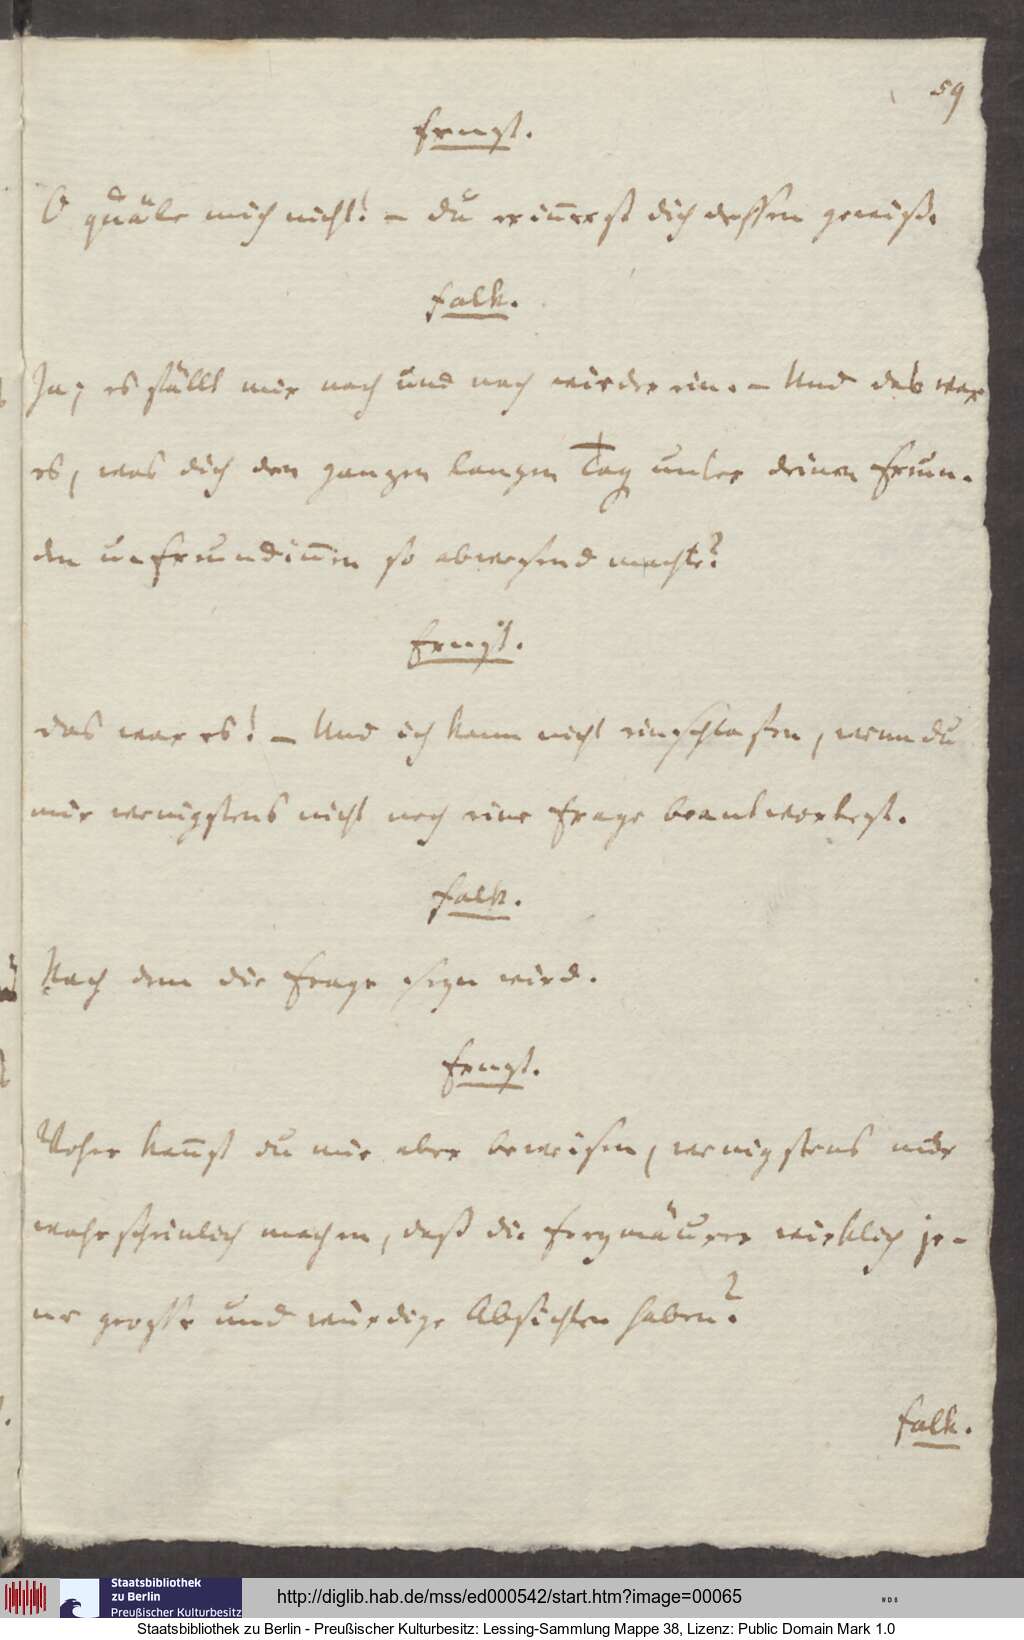 59
Ernst.
O quäle mich nicht! – du erin̄erst dich dessen gewiß.
Falk.
Ja; es fällt mir nach und nach wieder ein. – Und das war
es, was dich den ganzen langen Tag unter deinen Freun-
den u. Freundin̄en so abwesend machte?
Ernst.
das war es! – Und ich kann nicht einschlafen, wenn du
mir wenigstens nicht noch eine Frage beantwortest.
Falk.
Nach dem die Frage seyn wird.
Ernst.
Woher kan̄st du mir aber beweisen, wenigstens nur
wahrscheinlich machen, daß die Freymäurer wirklich je-
ne grosse und würdige Absichten haben?
Falk.
Staatsbibliothek
zu Berlin
Preußischer Kulturbesitz
http://diglib.hab.de/mss/ed000542/start.htm?image=00065
WDB
Staatsbibliothek zu Berlin - Preußischer Kulturbesitz: Lessing-Sammlung Mappe 38, Lizenz: Public Domain Mark 1.0